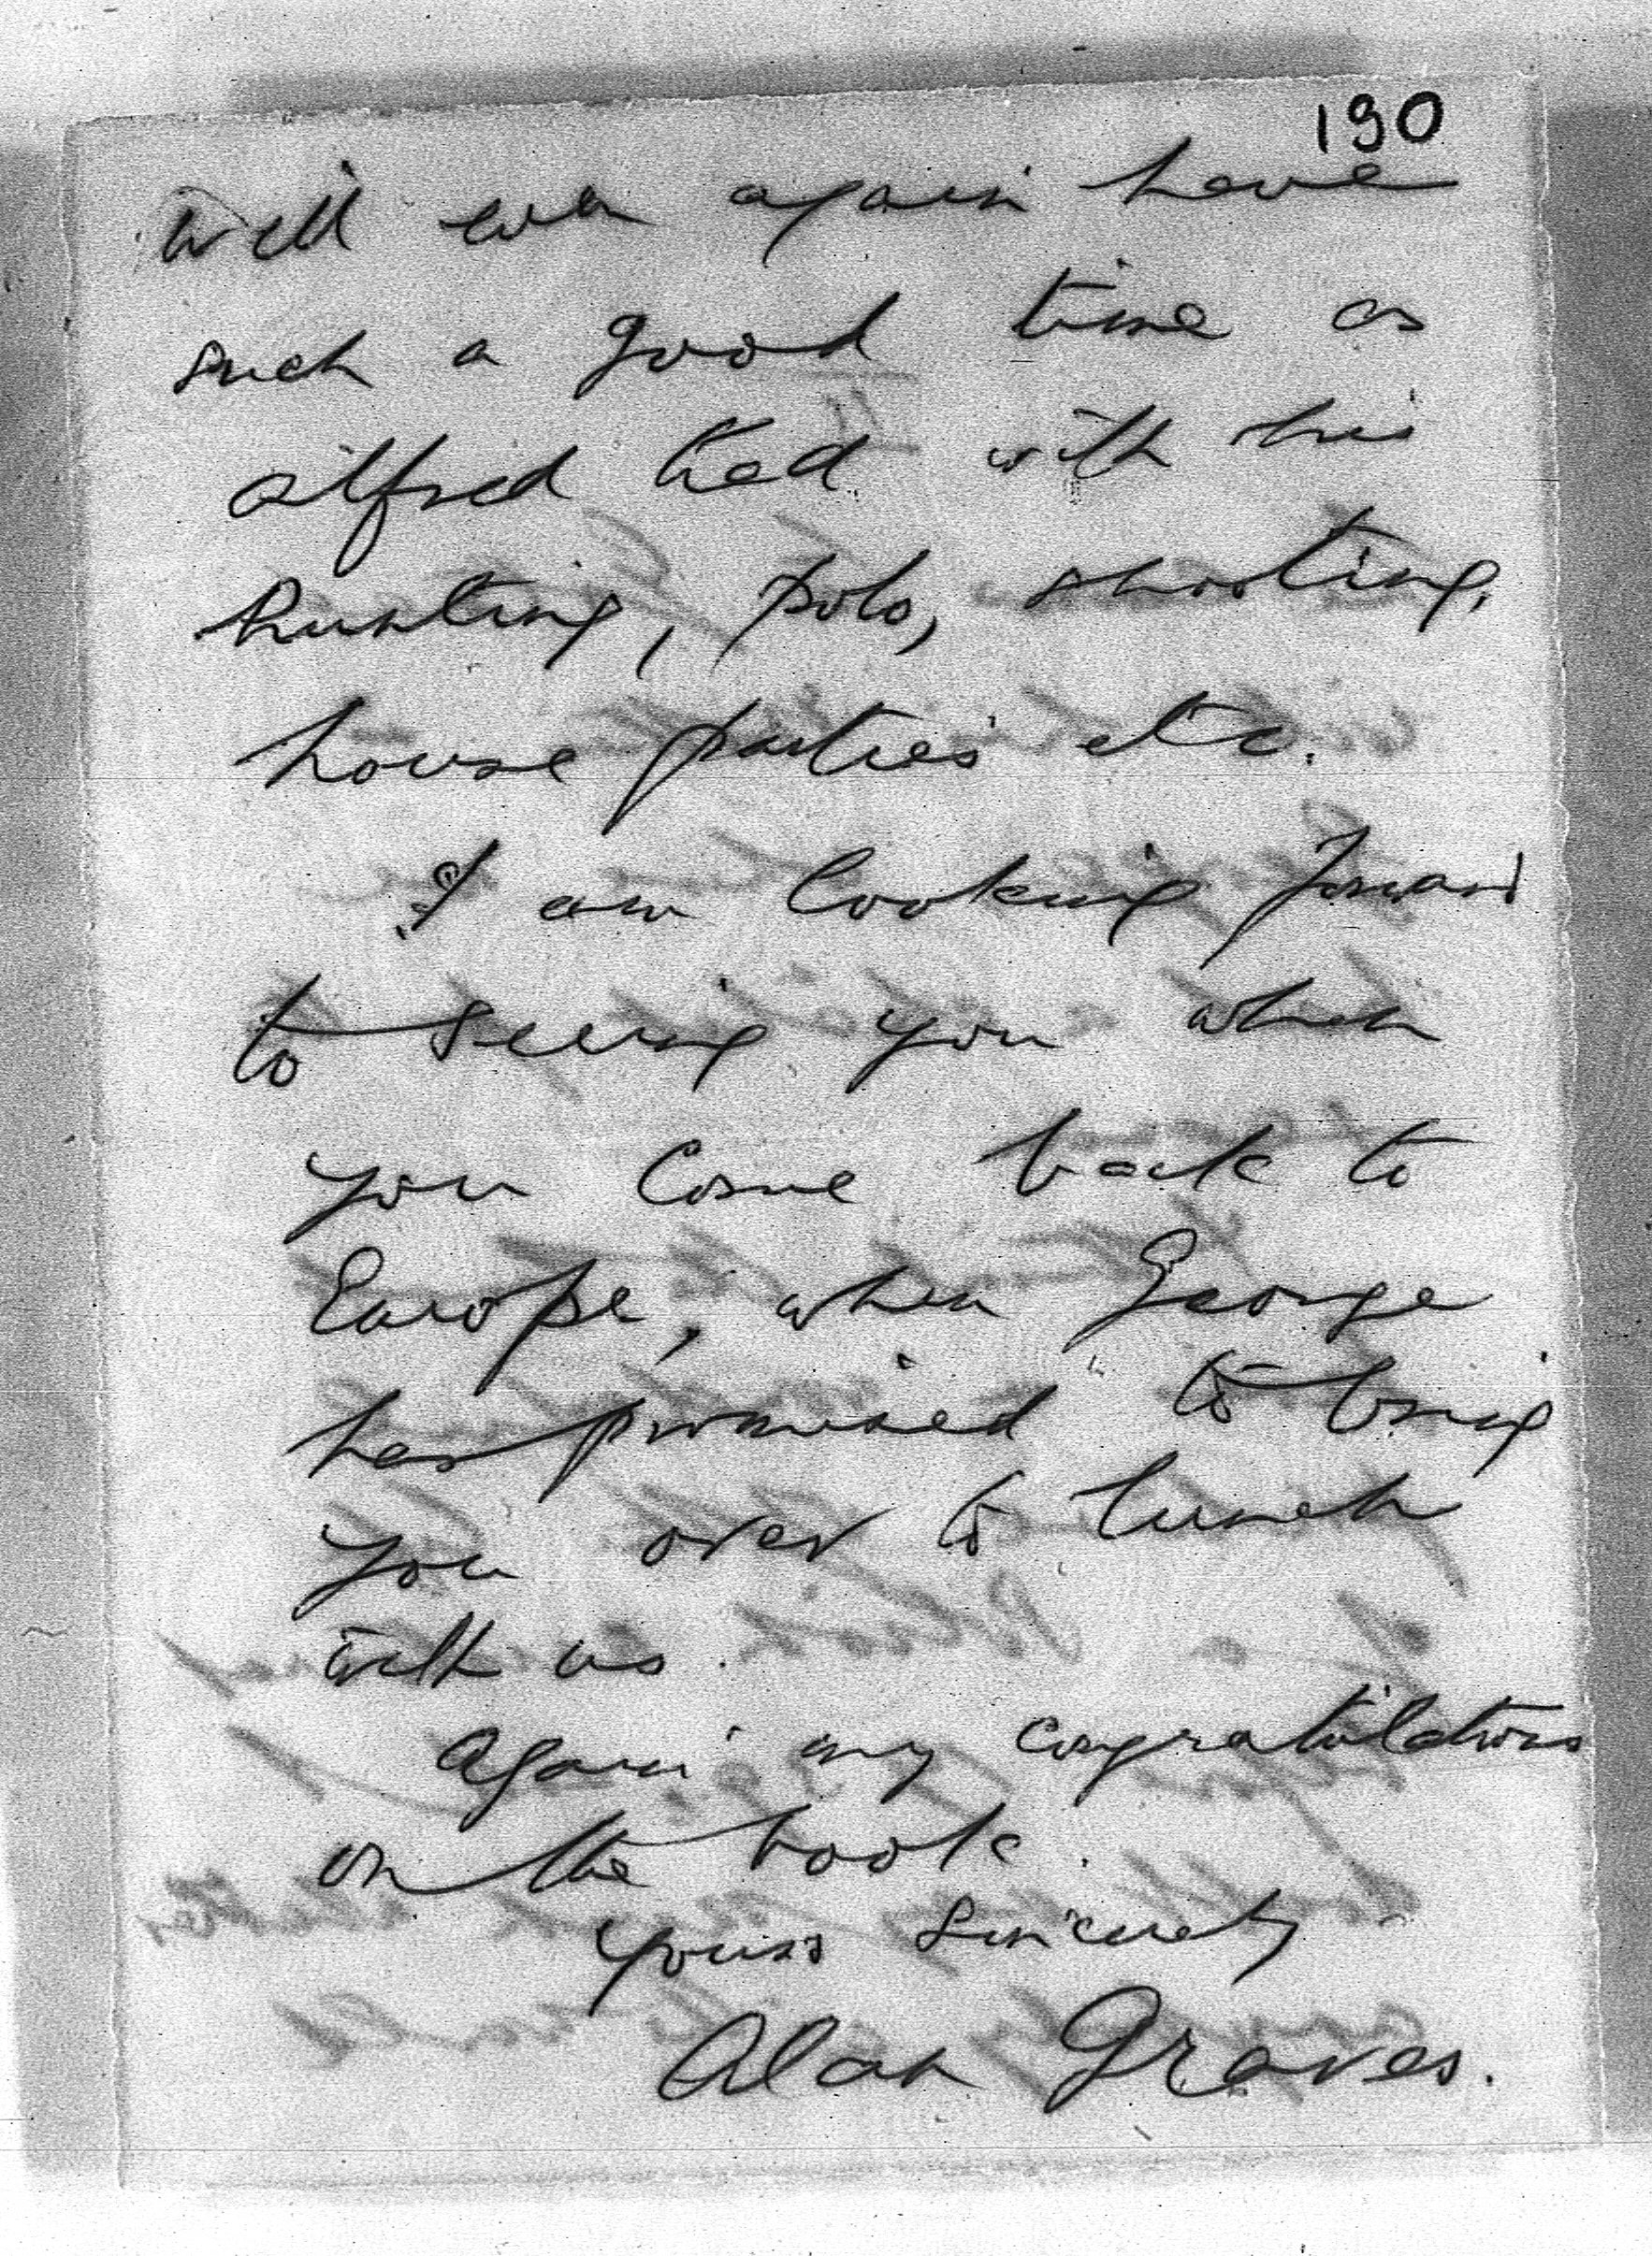 190
will ever again have
such a good time as
Alfred had with his
hunting, polo, shooting,
house parties etc.
I am looking forward
to seeing you when
you come back to
Europe, when George
has promised to bring
you over to lunch
with us.
Again my congratulations
on the book.
Yours sincerely
Alan Graves.